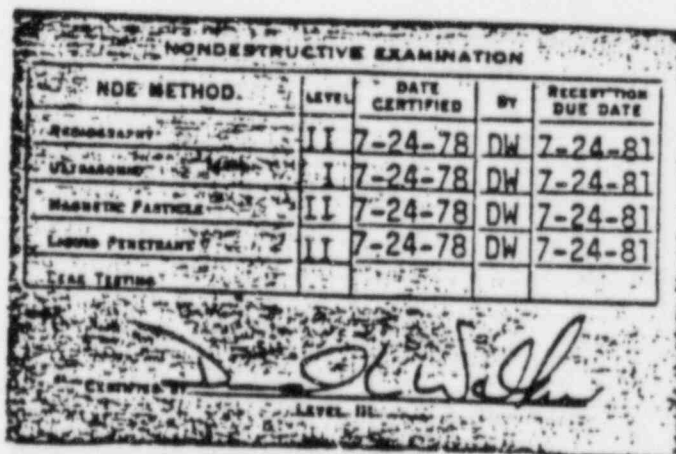 NONDESTRUCTIVE EXAMINATION
NDE METHOD. LEVEL DATE CERTIFIED BY DUE DATE
RADIOGRAPHY II 7-24-78 DW 7-24-81
ULTRASONIC I 7-24-78 DW 7-24-81
MAGNETIC PARTICLE II 7-24-78 DW 7-24-81
LIQUID PENETRANT II 7-24-78 DW 7-24-81
LEAK TESTING
CERTIFIED BY
LEVEL III